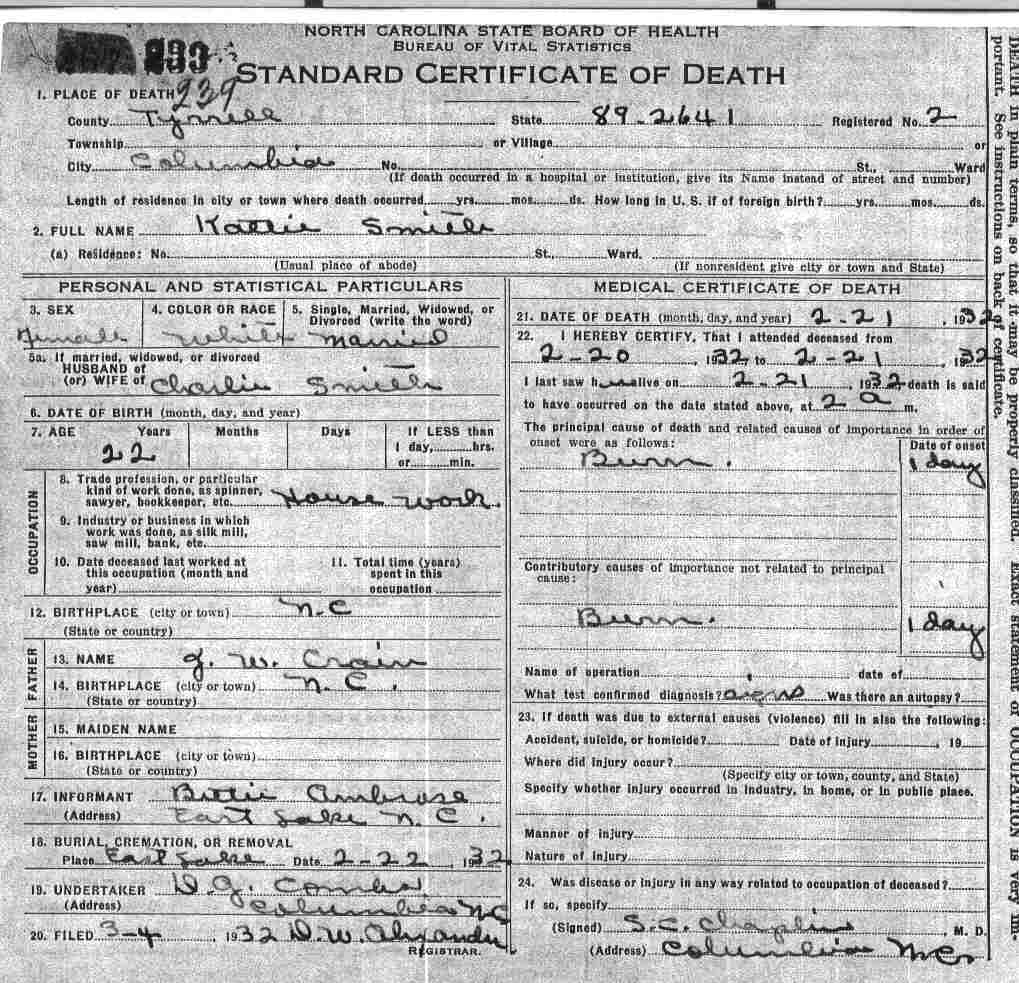 NORTH CAROLINA STATE BOARD OF HEALTH
BUREAU OF VITAL STATISTICS
233
STANDARD CERTIFICATE OF DEATH
1. PLACE OF DEATH 239
County Tyrrell State 89-2641 Registered No. 2
Township or Village or
City Columbia No. St., Ward
(If death occurred in a hospital or institution, give its Name instead of street and number)
Length of residence in city or town where death occurred yrs. mos. ds. How long in U. S. if of foreign birth? yrs. mos. ds.
2. FULL NAME Kattie Smith
(a) Residence: No. St., Ward.
(Usual place of abode) (If nonresident give city or town and State)
PERSONAL AND STATISTICAL PARTICULARS
3. SEX 4. COLOR OR RACE 5. Single, Married, Widowed, or
Divorced (write the word)
Female White Married
5a. If married, widowed, or divorced
HUSBAND of
(or) WIFE of Charlie Smith
6. DATE OF BIRTH (month, day, and year)
7. AGE Years Months Days If LESS than
1 day, hrs.
22 or min.
OCCUPATION
8. Trade profession, or particular
kind of work done, as spinner,
sawyer, bookkeeper, etc. House work.
9. Industry or business in which
work was done, as silk mill,
saw mill, bank, etc.
10. Date deceased last worked at 11. Total time (years)
this occupation (month and spent in this
year) occupation
12. BIRTHPLACE (city or town) N.C
(State or country)
FATHER
13. NAME J. W. Crain
14. BIRTHPLACE (city or town) N.C.
(State or country)
MOTHER
15. MAIDEN NAME
16. BIRTHPLACE (city or town)
(State or country)
17. INFORMANT Ambrose
(Address) East Lake N.C.
18. BURIAL, CREMATION, OR REMOVAL
Place East Lake Date 2-22, 1932
19. UNDERTAKER D. J. Combs
(Address) Columbia NC
20. FILED 3-4, 1932 D. W. Alexander
REGISTRAR.
MEDICAL CERTIFICATE OF DEATH
21. DATE OF DEATH (month, day, and year) 2-21, 1932
22. I HEREBY CERTIFY, That I attended deceased from
2-20 1932 to 2-21 1932
I last saw h alive on 2-21, 1932, death is said
to have occurred on the date stated above, at 2 a m.
The principal cause of death and related causes of importance in order of
onset were as follows: Date of onset
Burn. 1 day
Contributory causes of importance not related to principal
cause:
Burn. 1 day
Name of operation date of
What test confirmed diagnosis? signs Was there an autopsy?
23. If death was due to external causes (violence) fill in also the following:
Accident, suicide, or homicide? Date of Injury, 19
Where did injury occur?
(Specify city or town, county, and State)
Specify whether injury occurred in industry, in home, or in public place.
Manner of injury
Nature of injury
24. Was disease or injury in any way related to occupation of deceased?
If so, specify
(Signed) S.C. Chaplin, M. D.
(Address) Columbia NC
DEATH in plain terms, so that it may be properly classified. Exact statement of OCCUPATION is very im-
portant. See instructions on back of certificate.